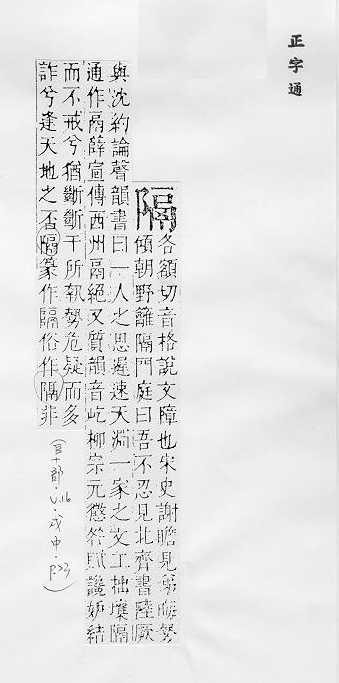 正字通
隔
各額切音格說文障也宋史謝瞻見弟晦勢
傾朝野籬隔門庭曰吾不忍見北齊書陸厥
與沈約論聲韻書曰一人之思遲速天淵一家之文工拙壤隔
通作鬲薛宣傳西州鬲絕又質韻音屹柳宗元懲咎賦讒妬結
而不戒兮猶斷斷于所執勢危疑而多
詐兮逢天地之否隔篆作隔俗作隔非
(阜部·V.16·戌中·P23)